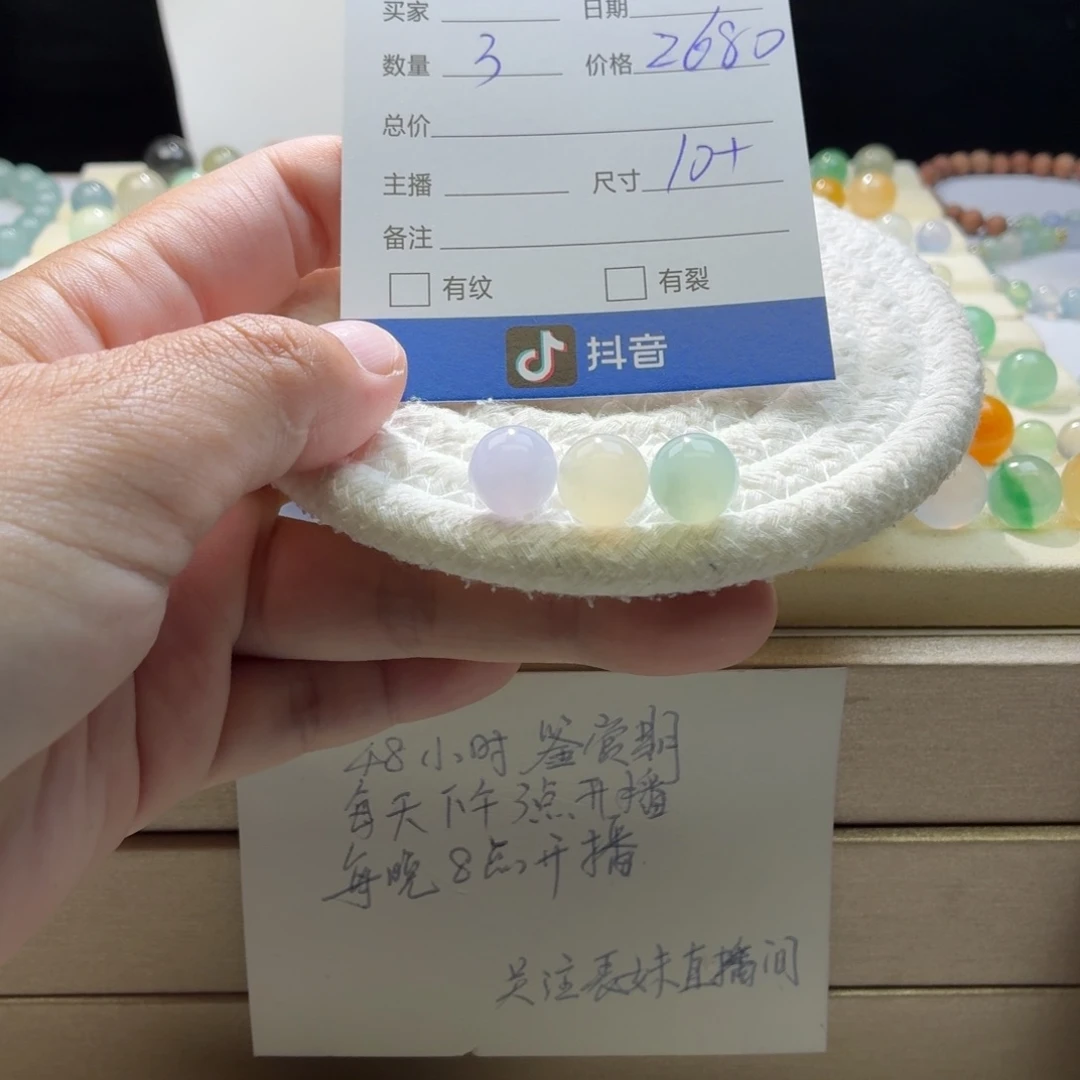 买家 日期
数量 3 价格 2680
总价
主播 尺寸 10+
备注
有纹 有裂
抖音
48小时鉴赏期
每天下午3点开播
每晚8点开播
关注表妹直播间